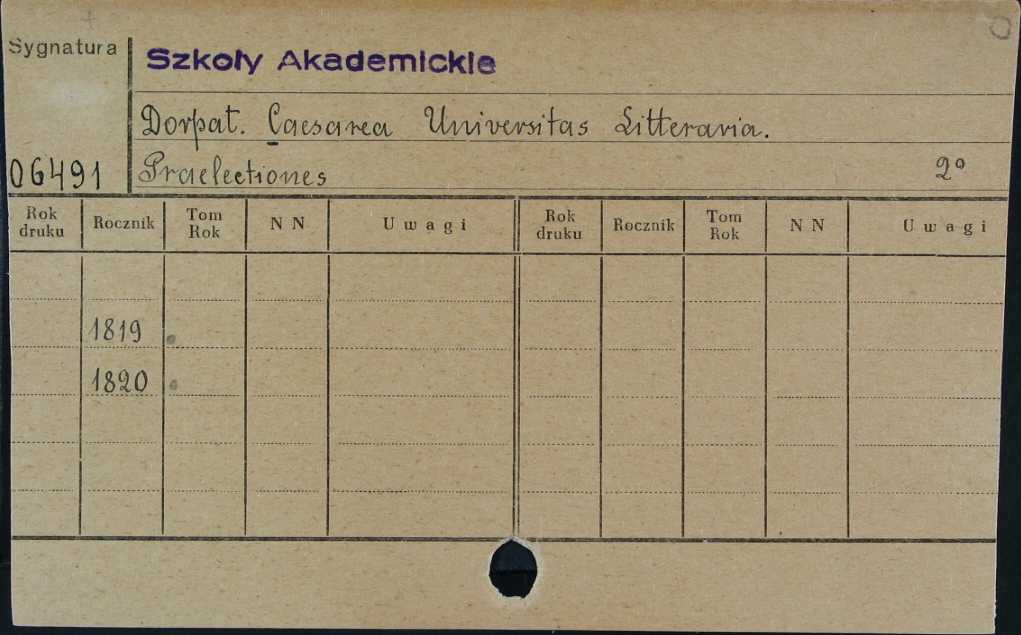 Sygnatura
Szkoły Akademickie
Dorpat. Caesarea Universitas Litteraria.
06491
Praelectiones 2°
Rok druku Rocznik Tom Rok N N Uwagi Rok druku Rocznik Tom Rok N N Uwagi
1819
1820